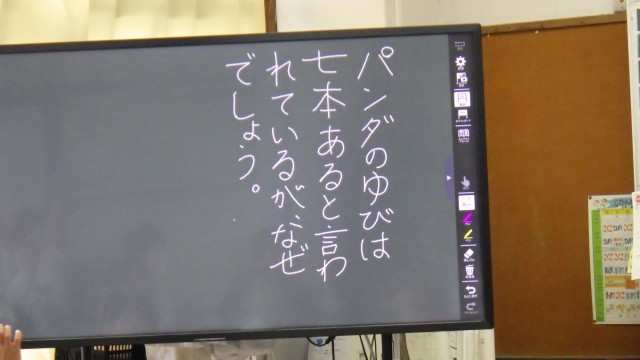 パンダのゆびは
七本あると言わ
れているが、なぜ
でしょう。